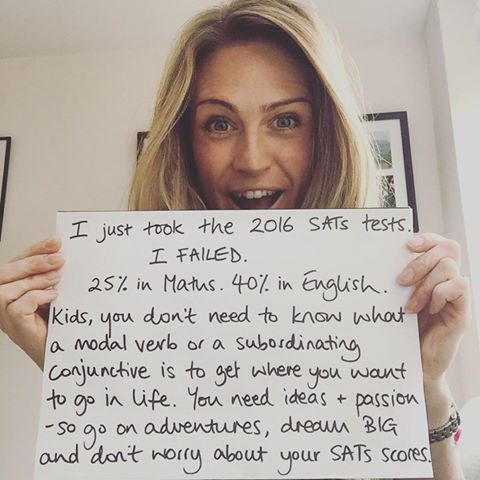 I just took the 2016 SATs tests.
I FAILED.
25% in Maths. 40% in English.
Kids, you don't need to know what
a modal verb or a subordinating
conjunctive is to get where you want
to go in life. You need ideas + passion
- so go on adventures, dream BIG
and don't worry about your SATs scores.